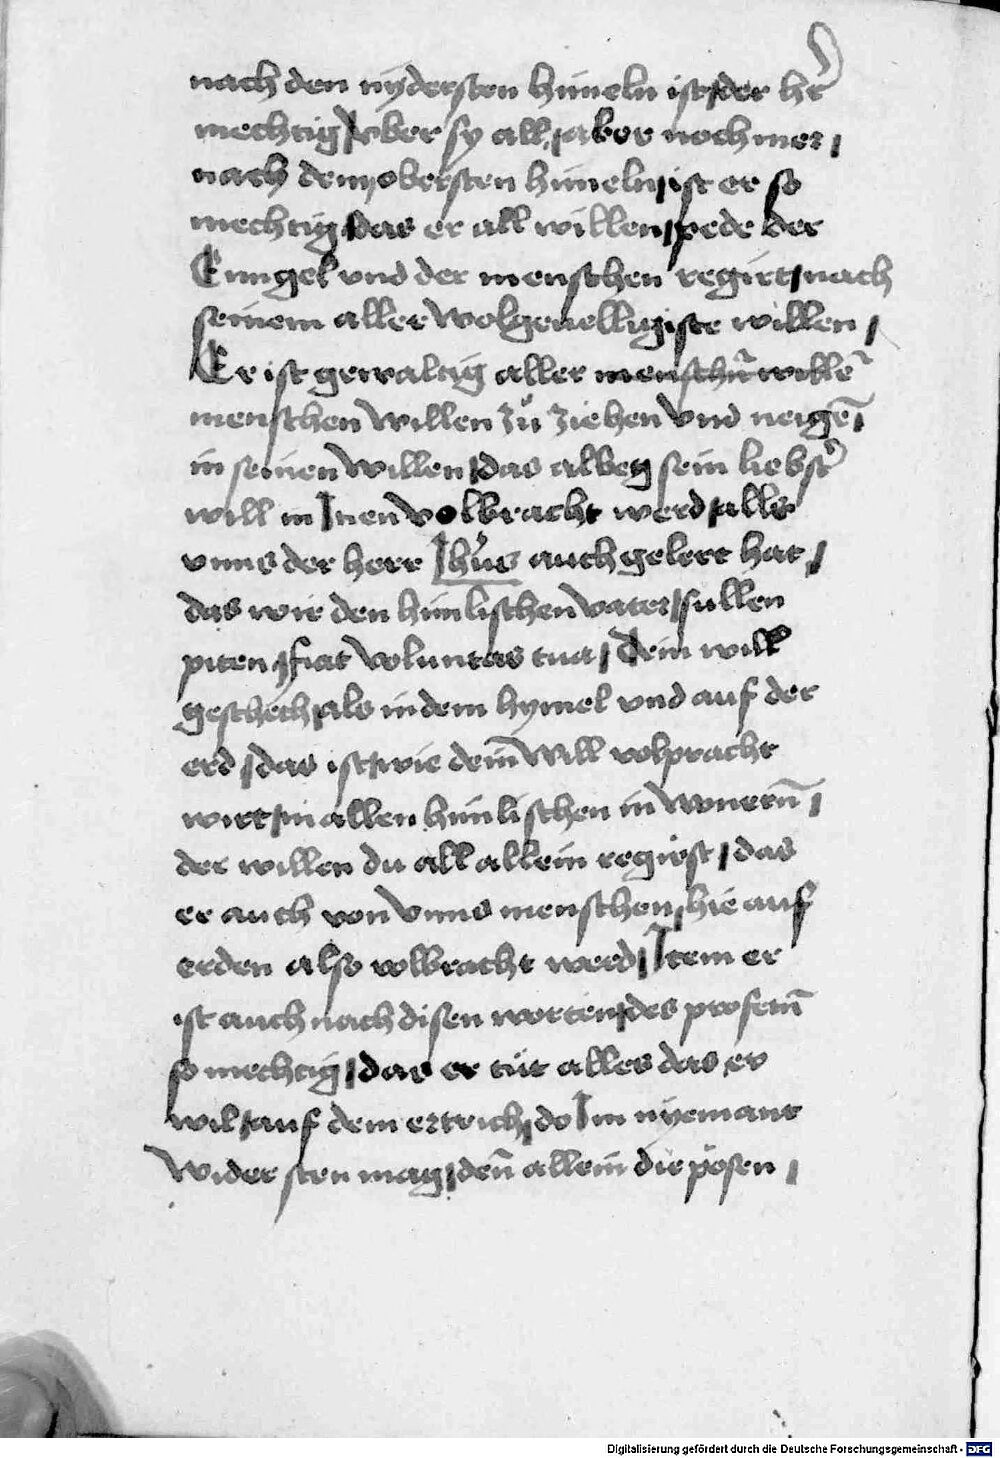 nach den nydersten himeln ist der hr̄
mechtig ober sy all, aber noch mer,
nach dem obersten himeln ist er so
mechtig das er all willen pede der
Enngel vnd der menschen regirt nach
seinem aller wolgeuelligiste willen,
Er ist gewaltig aller menschn̄ willē
menschen willen zů ziehen vnd neigē
in seinen willen das alweg sein liebstr̄
will in Inen volbracht werd als
vnns der herr Ihūs auch gelert hat,
das wir den himlischen vater sullen
piten fiat voluntas tua, dein will
geschech als in dem hymel vnd auf der
erd, das ist wie dein will volpracht
wirt in allen himlischen in wonern̄,
der willen du all allein regirst, das
er auch von vnns menschen hie auf
erden also volbracht werd, Item er
ist auch nach disen worten des profetn̄
so mechtig, das er tůt alles das er
wil auf dem ertrich, do Im nyemant
wider sten mag, den̄ allein die pösen,
Digitalisierung gefördert durch die Deutsche Forschungsgemeinschaft - DFG